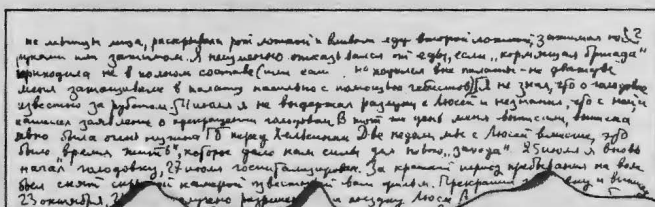 не мышцы лица, раскрывали рот ложкой и вливали еду второй ложкой, зажимая нос
руками или зажимом. Я неизменно отказывался от еды, если „кормящая бригада"
приходила не в полном составе (или если находился вне палаты - но дважды
меня затаскивали в палату насильно с помощью гебистов). Я не знал, что о голодовке
известно за рубежом. 11 июля я не выдержал разлуки с Люсей и незнания, что с ней, и
написал заявление о прекращении голодовки. В тот же день меня выписали, выписка
явно была очень нужна ГБ перед Хельсинки. Две недели мы с Люсей вместе, это
было время жить", которое дало нам силы для нового „захода" 25 июля я вновь
начал голодовку, 27 июля госпитализирован. За краткий период пребывания на воле
был снят скрытой камерой известный вам фильм. Прекращи
23 октября, разреше и поездку Люси